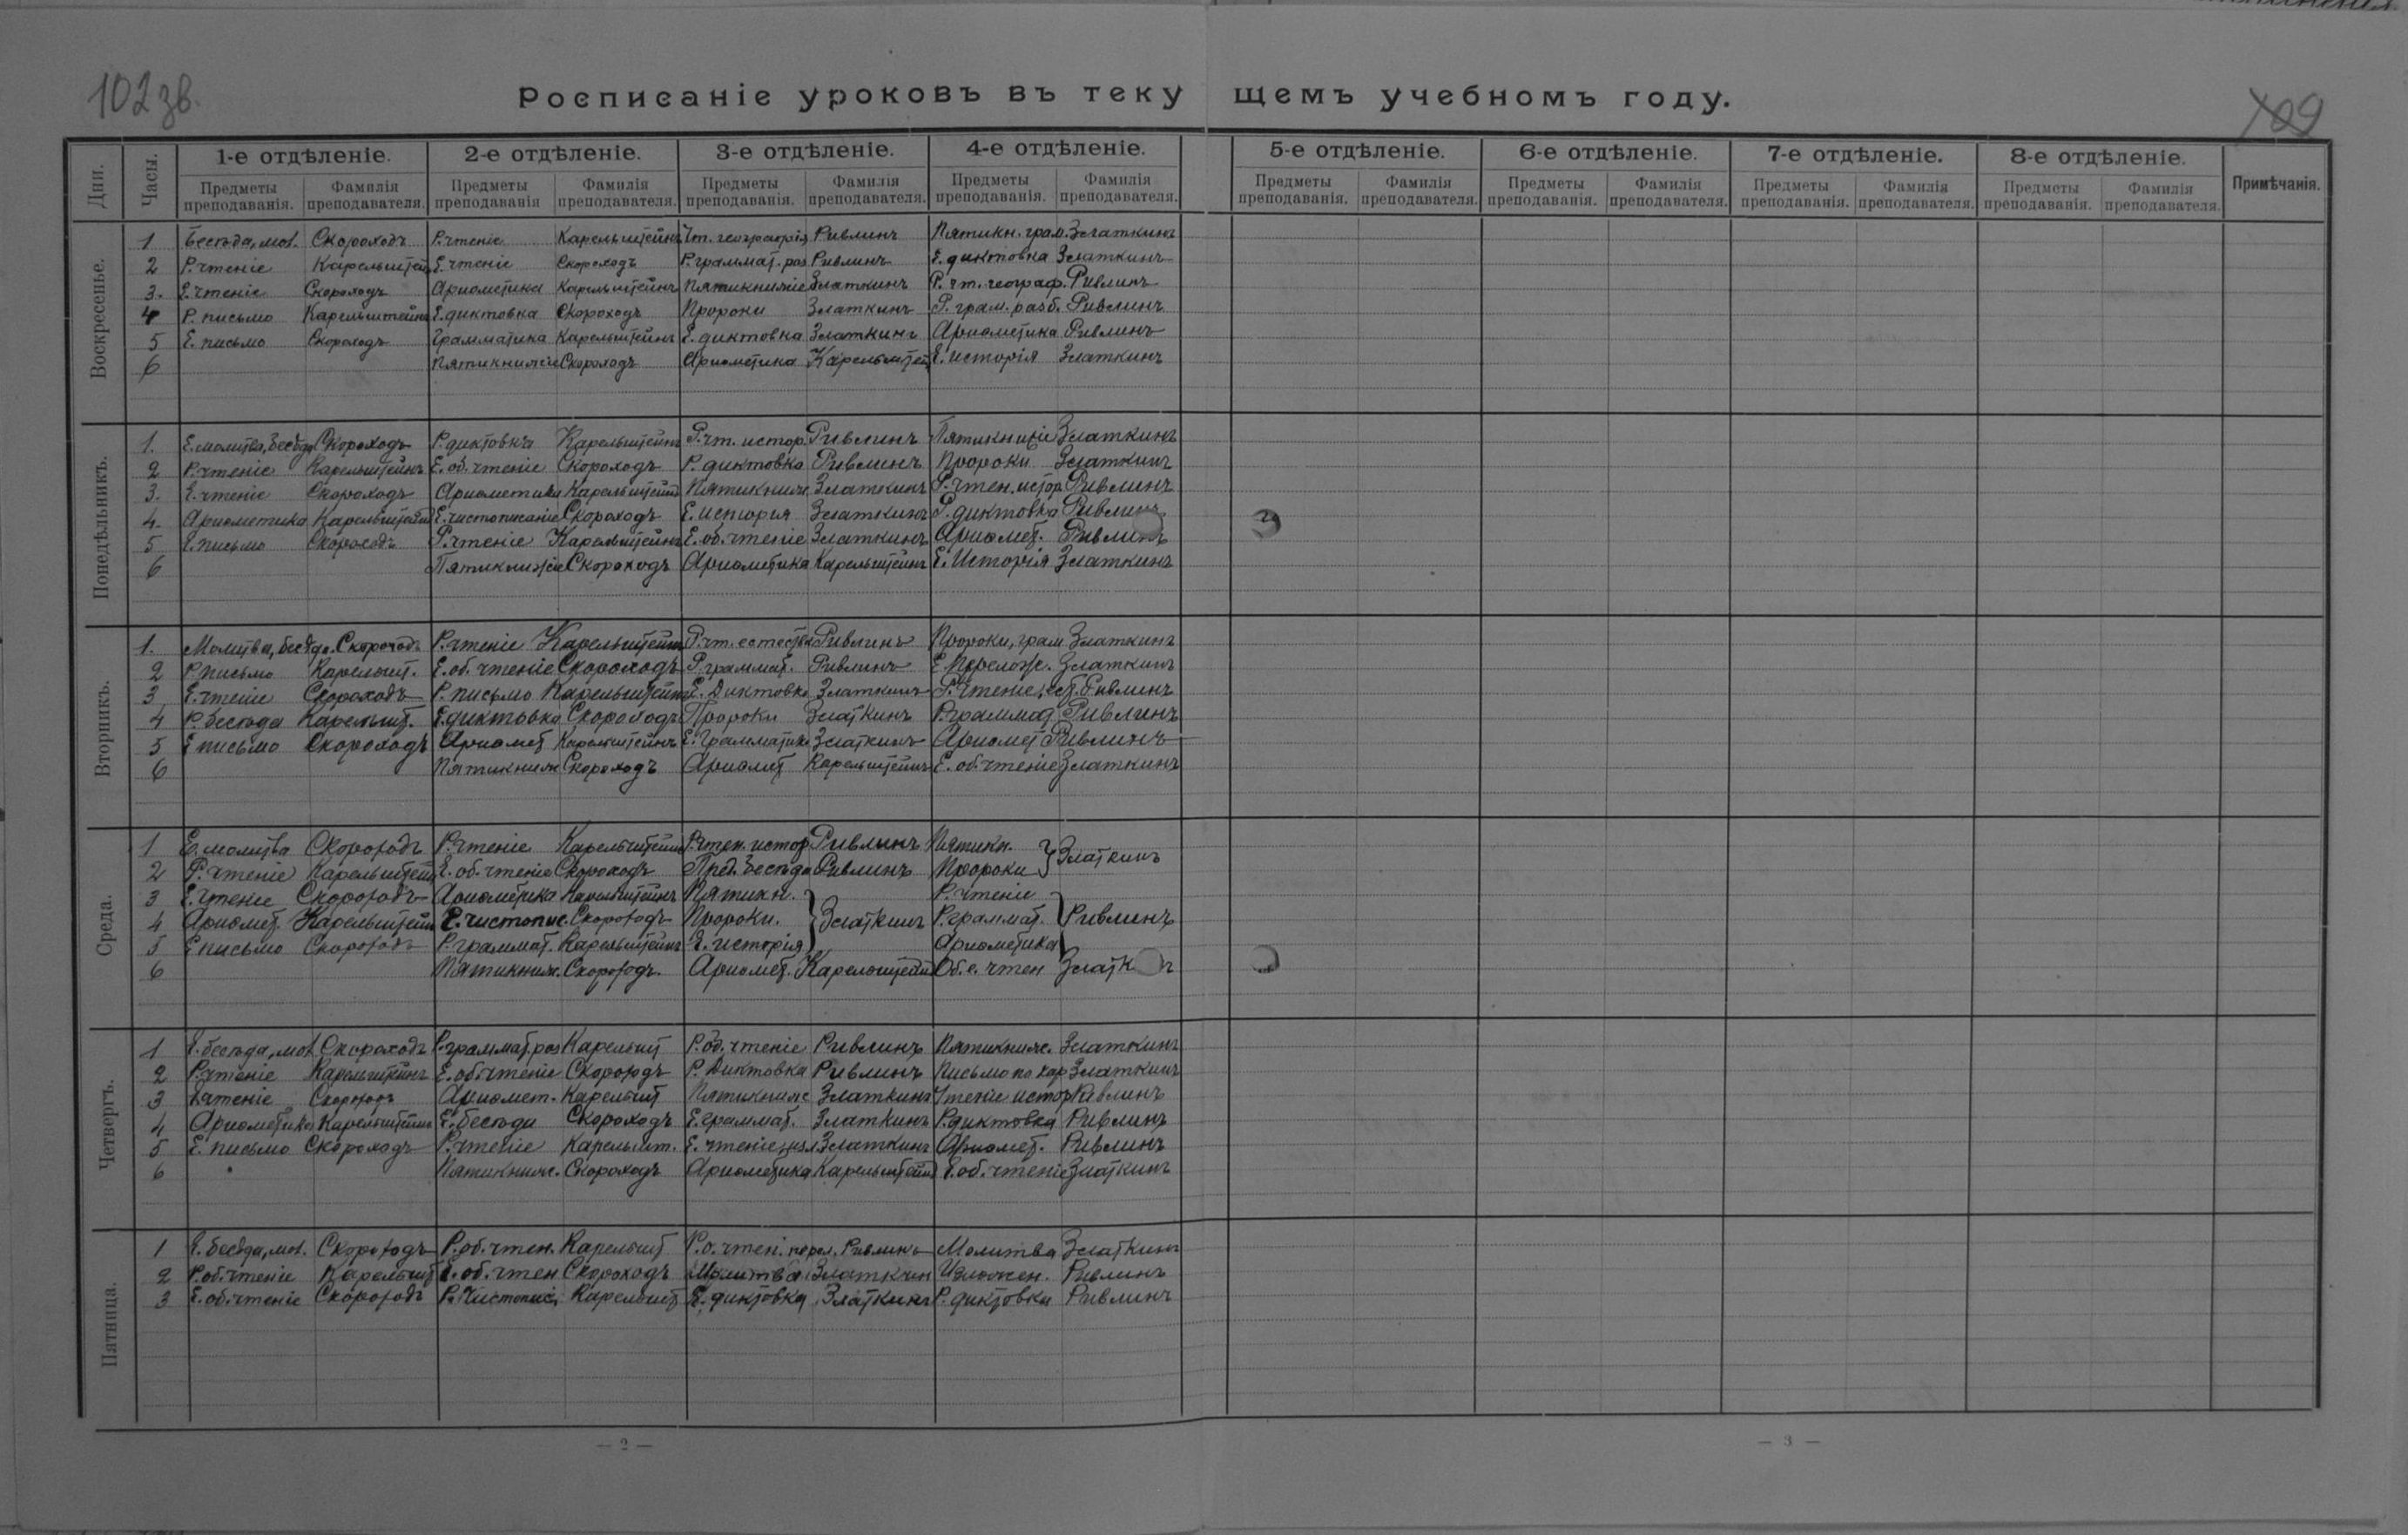 102 зв.
Росписаніе уроковъ въ теку щемъ учебномъ году.
109
Дни. Часы. 1-е отдѣленіе. 2-е отдѣленіе. 3-е отдѣленіе. 4-е отдѣленіе. 5-е отдѣленіе. 6-е отдѣленіе. 7-е отдѣленіе. 8-е отдѣленіе. Примѣчанія.
Предметы преподаванія. Фамилія преподавателя. Предметы преподаванія Фамилія преподавателя. Предметы преподаванія. Фамилія преподавателя. Предметы преподаванія. Фамилія преподавателя. Предметы преподаванія. Фамилія преподавателя. Предметы преподаванія. Фамилія преподавателя. Предметы преподаванія. Фамилія преподавателя. Предметы преподаванія. Фамилія преподавателя.
Воскресенье.
1 Бесѣда, мол. Скороходъ Р. чтеніе Карельштейнъ Чт. географія Ривлинъ Пятикн. грам. Златкинъ
2 Р. чтеніе Карельштей Е. чтеніе Скороходъ Р. граммат. раз Ривлинъ Е. диктовка Златкинъ
3. Е. чтеніе Скороходъ Ариѳметика Карельштейнъ Пятикнижіе Златкинъ Р. чт. географ. Ривлинъ
4 Р. письмо Карельштейнъ Е. диктовка Скороходъ Пророки Златкинъ Р. грам. разб. Ривлинъ
5 Е. письмо Скороходъ Грамматика Карельштейнъ Е. диктовка Златкинъ Ариѳметика Ривлинъ
6 Пятикнижіе Скороходъ Ариѳметика Карельштей Е. исторія Златкинъ
Понедѣльникъ.
1. Е. молитва, бесѣда Скороходъ Р. диктовка Карельштейнъ Р. чт. истор. Ривлинъ Пятикнижіе Златкинъ
2 Р. чтеніе Карельштейнъ Е. об. чтеніе Скороходъ Р. диктовка Ривлинъ Пророки Златкинъ
3. Е. чтеніе Скороходъ Ариѳметика Карельштейнъ Пятикниж. Златкинъ Р. чтен. истор. Ривлинъ
4. Ариѳметика Карельштейнъ Е. чистописаніе Скороходъ Е. исторія Златкинъ Р. диктовка Ривлинъ
5 Е. письмо Скороходъ Р. чтеніе Карельштейнъ Е. об. чтеніе Златкинъ Ариѳмет. Ривлинъ
6 Пятикнижіе Скороходъ Ариѳметика Карельштейнъ Е. Исторія Златкинъ
Вторникъ.
1. Молитва, бесѣда. Скороходъ Р. чтеніе Карельштейнъ Р. чт. естеств Ривлинъ Пророки, грам Златкинъ
2 Р. письмо Карельшт. Е. об. чтеніе Скороходъ Р. граммат. Ривлинъ Е. перелож. Златкинъ
3 Е. чтеніе Скороходъ Р. письмо Карельштейнъ Е. Диктовка Златкинъ Р. чтеніе, ест. Ривлинъ
4 Р. бесѣда Карельшт. Е. диктовка Скороходъ Пророки Златкинъ Р. граммат Ривлинъ
5 Е письмо Скороходъ Ариѳмет Карельштейнъ Е. Грамматик Златкинъ Ариѳмет Ривлинъ
6 Пятикниж Скороходъ Ариѳмет Карельштейнъ Е. об. чтеніе Златкинъ
Среда.
1 Е. молитва Скороходъ Р. чтеніе Карельштейнъ Р. чтен. истор Ривлинъ Пятикн.
2 Р. чтеніе Карельштейн Е. об. чтеніе Скороходъ Пред. бесѣда Ривлинъ Пророки } Златкинъ
3 Е. чтеніе Скороходъ Ариѳметика Карельштейнъ Пятикн. Р. чтеніе
4 Ариѳмет. Карельштейн Е. чистопис. Скороходъ Пророки. } Златкинъ Р. граммат. } Ривлинъ
5 Е письмо Скороходъ Р. граммат. Карельштейнъ Е. исторія Ариѳметика
6 Пятикниж. Скороходъ. Ариѳмет. Карельштейнъ Об. е. чтен Златк нъ
Четвергъ.
1 Е. бесѣда, мол Скороходъ Р. граммат. раз Карельшт Р. об. чтеніе Ривлинъ Пятикниж. Златкинъ
2 Р. чтеніе Карельштейнъ Е. об. чтеніе Скороходъ Р. Диктовка Ривлинъ Письмо по кар Златкинъ
3 Е. чтеніе Скороходъ Ариѳмет. Карельшт Пятикниж Златкинъ Чтеніе истор Ривлинъ
4 Ариѳметика Карельштейнъ Е. бесѣди Скороходъ Е. граммат. Златкинъ Р. диктовка Ривлинъ
5 Е. письмо Скороходъ Р. чтеніе Карельшт. Е. чтеніе Златкинъ Ариѳмет. Ривлинъ
6 Пятикниж. Скороходъ Ариѳметика Карельштейнъ Е. об. чтеніе Златкинъ
Пятница.
1 Е. бесѣда, мол. Скороходъ Р. об. чтен. Карельшт Р. о. чтен. Ривлинъ Молитва Златкинъ
2 Р. об. чтеніе Карельшт Е. об. чтен Скороходъ Молитва Златкин Изложен. Ривлинъ
3 Е. об. чтеніе Скороходъ Р. Чистопис. Карельшт Е. диктовка Златкинъ Р. диктовки Ривлинъ
— 2 —
— 3 —